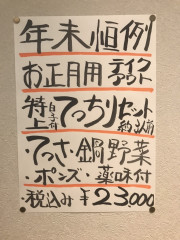 年末恒例
お正月用 テイクアウト
特上 白子付 てっちりセット 約3人前
・てっさ・鍋野菜
・ポンズ・薬味付
・税込み ¥23000